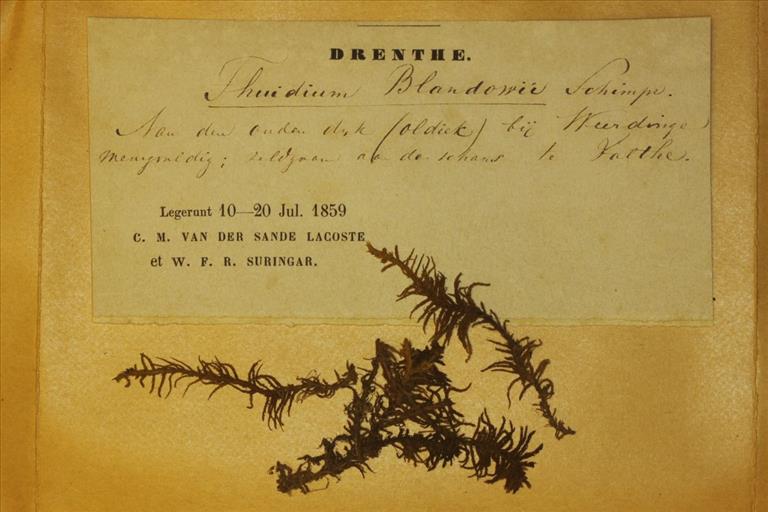 DRENTHE.
Thuidium Blandowii Schimp.
Aan den ouden dyk (oldiek) bij Weerdinge
menigvuldig; zeldzaam aan de schans te Valthe.
Legerunt 10—20 Jul. 1859
C. M. VAN DER SANDE LACOSTE
et W. F. R. SURINGAR.